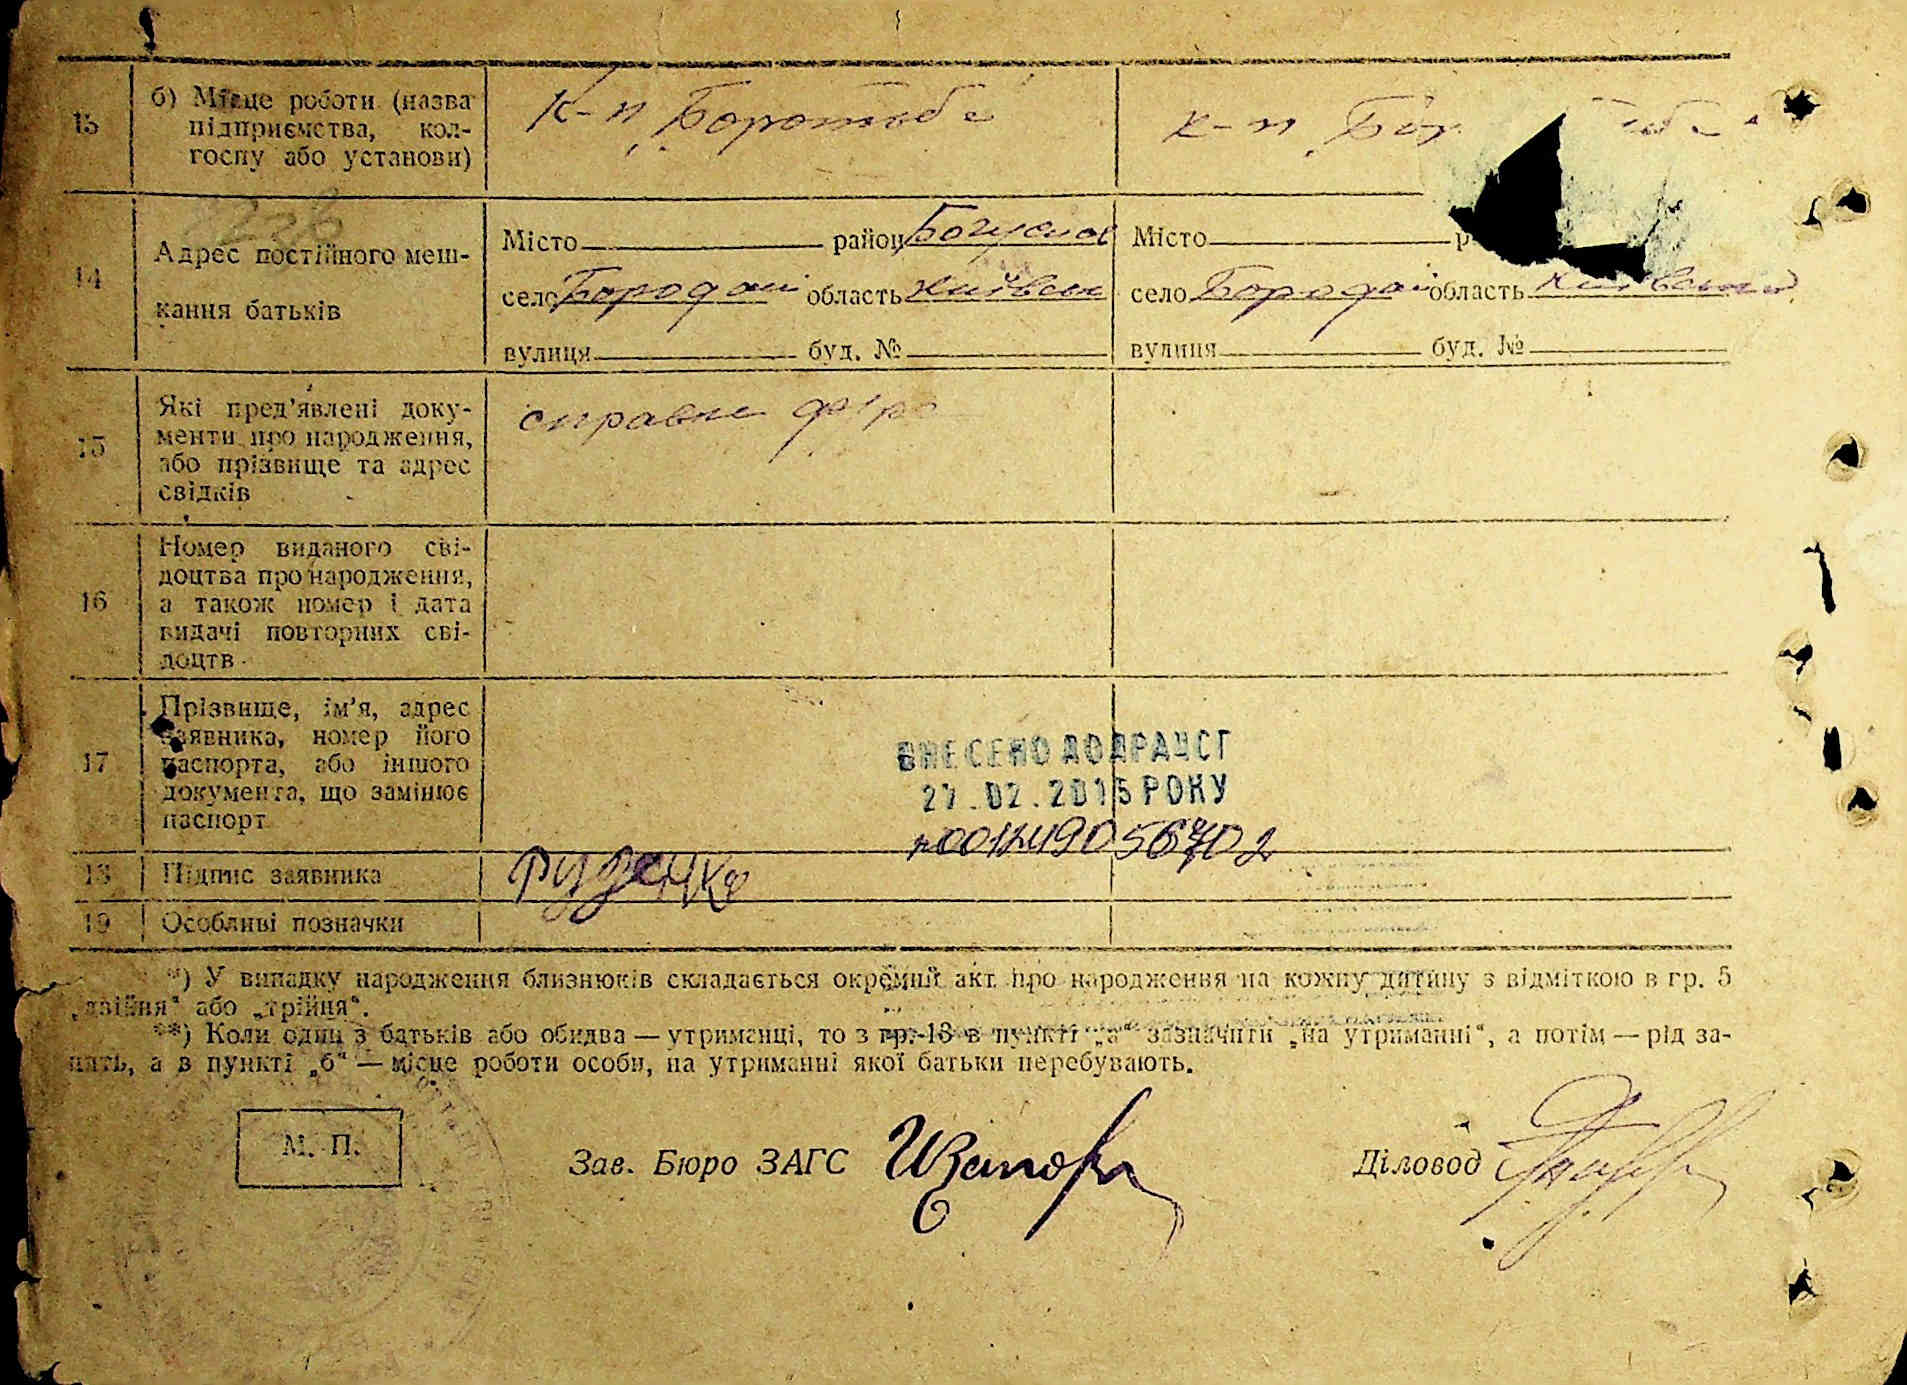 б) Місце роботи (назва
підприємства, кол-
госпу або установи)
к-п „Боротьба
к-п „
14
Адрес постійного меш-
кання батьків
Місто район Богуслав
село Бородані область київськ
вулиця буд. №
Місто
село Бородані область київськ
вулиця буд. №
15
Які пред'явлені доку-
менти про народження,
або прізвище та адрес
свідків
справка
16
Номер виданого сві-
доцтва про народження,
а також номер і дата
видачі повторних сві-
доцтв
17
Прізвище, ім'я, адрес
заявника, номер його
паспорта, або іншого
документа, що замінює
паспорт
ВНЕСЕНО ДО ДРАЦСГ
27.02.2015 РОКУ
18
Підпис заявника
19
Особливі позначки
*) У випадку народження близнюків складається окремий акт про народження на кожну дитину з відміткою в гр. 5
„двійня" або „трійня".
**) Коли один з батьків або обидва — утриманці, то з гр. 13 в пункті „а" зазначити „на утриманні", а потім — рід за-
нять, а в пункті „б" — місце роботи особи, на утриманні якої батьки перебувають.
М. П.
Зав. Бюро ЗАГС
Діловод